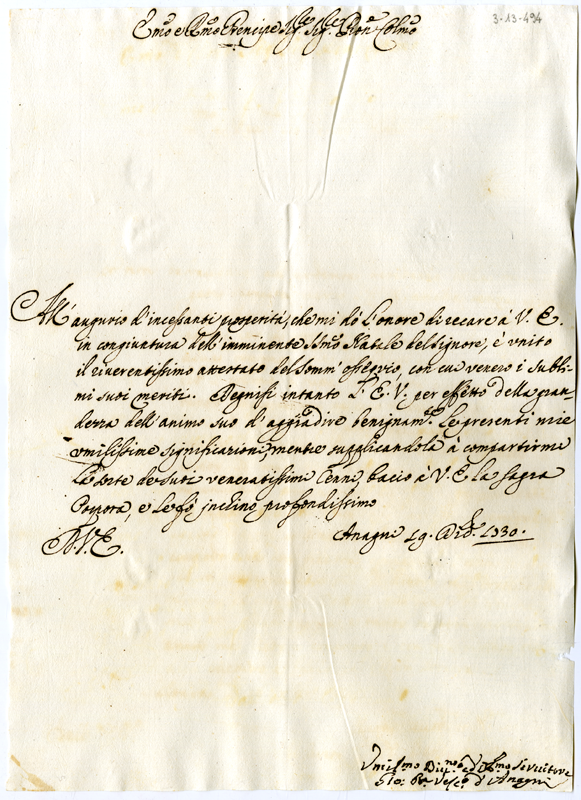 3-13-494
Emo e Rmo Prencipe Sig.re Sig.re Pron.e Colmo
All'augurio d'incessanti prosperità, che mi dò l'onore di recare à V. E.
in congiuntura dell'imminente Smo Natale del Signore, è unito
il riverentissimo attestato del somm' ossequio, con cui venero i subli-
mi suoi meriti. Degnisi intanto l'E. V. per effetto della gran-
dezza dell'animo suo d'aggradire benignam.te le presenti mie
umilissime significazioni, mentre supplicandola à compartirmi
la sorte de suoi veneratissimi Cenni, bacio à V. E. la sagra
Porpora, e le fò inclino profondissimo
D. V. E.
Anagni 19. Dic.e 1730.
Umilmo Div.mo ed Obl.mo Servitore
Gio: Ba. Vesc.o d'Anagni